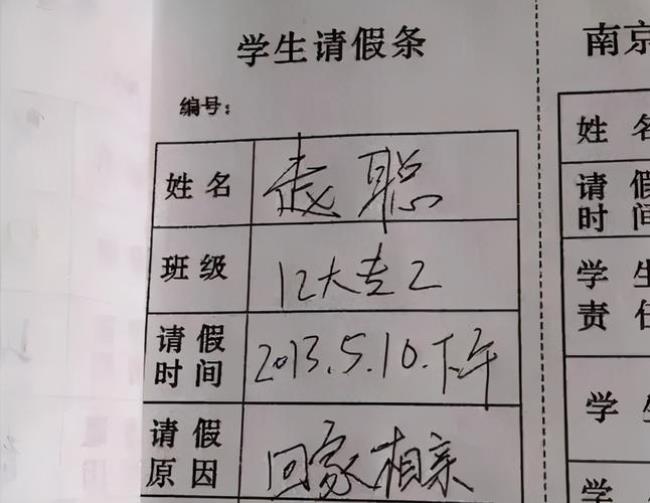 学生请假条
编号：
姓名 赵聪
班级 12大专2
请假时间 2013.5.10.下午
请假原因 回家相亲
南京
姓名
请假时间
学生
责任
学生
学生